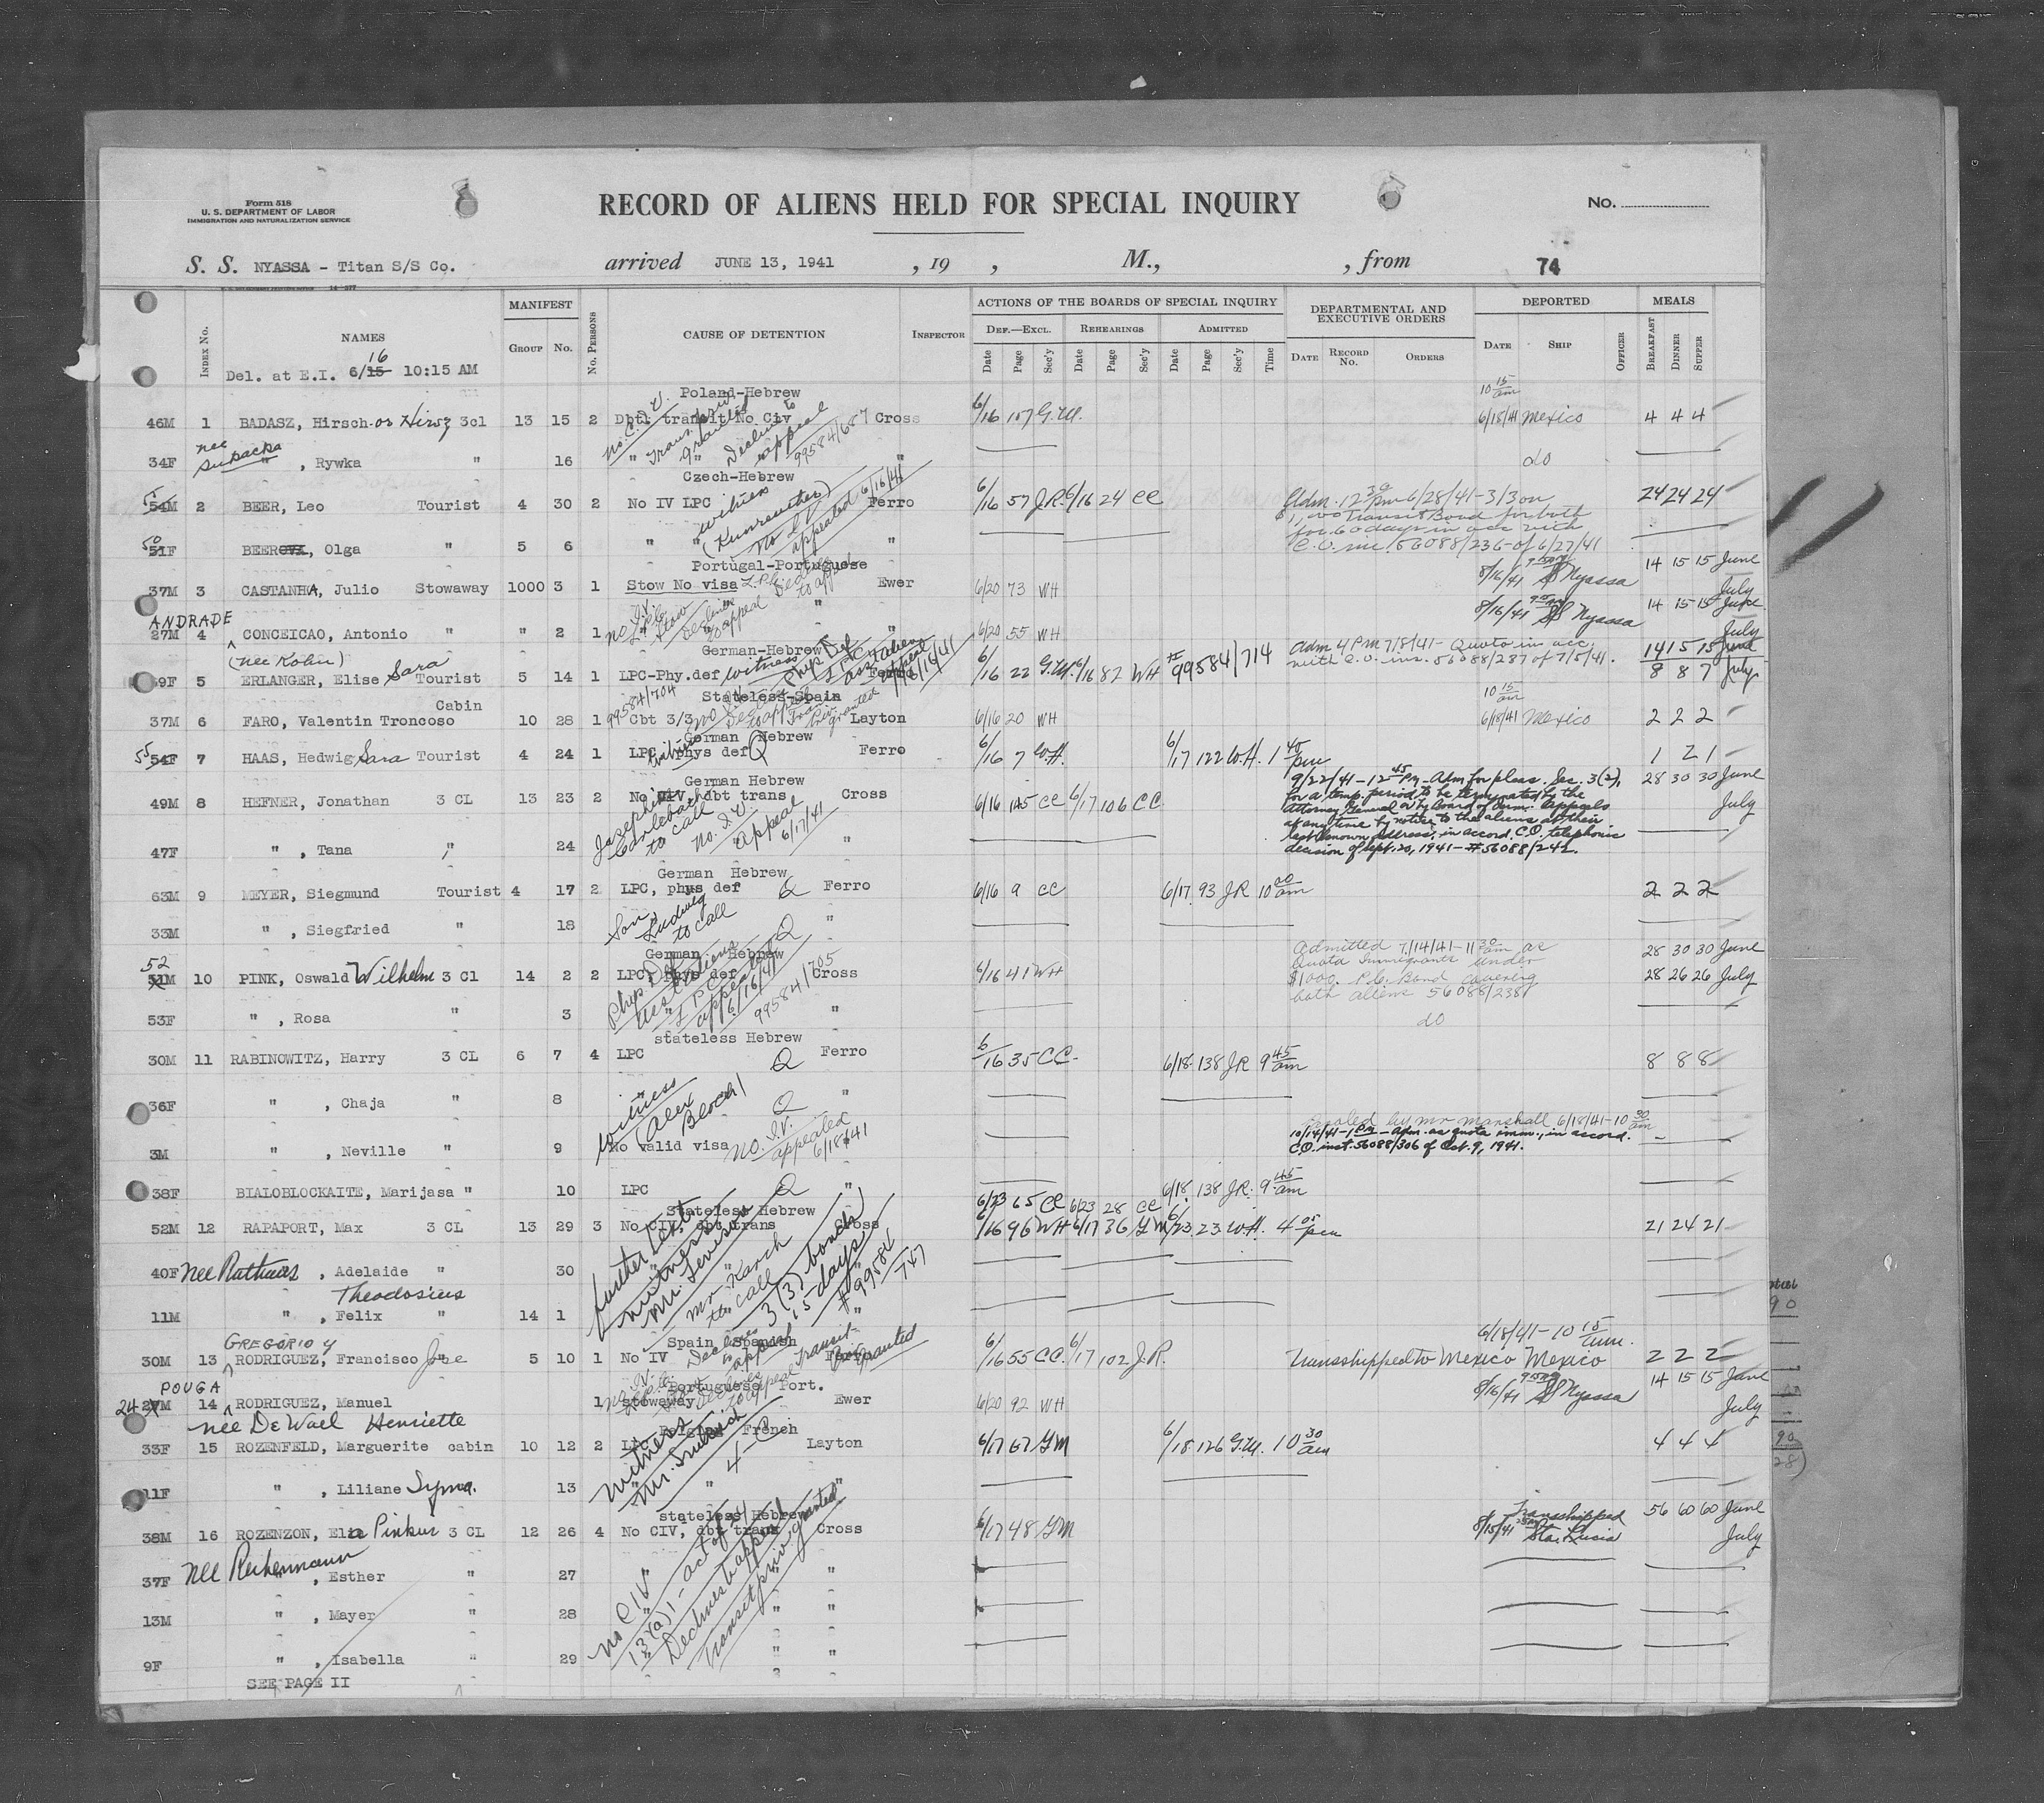 Form 518
U. S. DEPARTMENT OF LABOR
IMMIGRATION AND NATURALIZATION SERVICE
RECORD OF ALIENS HELD FOR SPECIAL INQUIRY
No.
S. S. NYASSA - Titan S/S Co. arrived JUNE 13, 1941 , 19 , M., , from 74
INDEX No. NAMES MANIFEST GROUP No. No. PERSONS CAUSE OF DETENTION INSPECTOR ACTIONS OF THE BOARDS OF SPECIAL INQUIRY DEPARTMENTAL AND EXECUTIVE ORDERS DEPORTED MEALS
DEF.—EXCL. REHEARINGS ADMITTED
Date Page Sec'y Date Page Sec'y Date Page Sec'y Time DATE RECORD No. ORDERS DATE SHIP OFFICER BREAKFAST DINNER SUPPER
Del. at E.I. 6/15 16 10:15 AM
Poland-Hebrew
46M 1 BADASZ, Hirsch or Hirsz 3cl 13 15 2 Dbtl transit No Civ Cross 6/16 107 G.M. 10 15 am 6/18/41 Mexico 4 4 4
No. C.I.V. Trans. priv granted Declines to appeal 99584/687
nee
34F " , Rywka " 16 " " " do
Czech-Hebrew
54M 2 BEER, Leo Tourist 4 30 2 No IV LPC Ferro 6/16 57 J.R. 6/16 24 CC Adm. 12 30 pm 6/28/41 - 3/3 on 24 24 24
$1,000 Transit Bond for both
for 60 days in acc with
witness No I.V. appealed 6/16/41
50 51F BEEROVA, Olga " 5 6 " " " C.O. ins. 56088/236 of 6/27/41
Portugal-Portuguese
37M 3 CASTANHA, Julio Stowaway 1000 3 1 Stow No visa L.P.C. Declines to appeal Ewer 6/20 73 WH 8/16/41 SS Nyassa 14 15 15 June
July
ANDRADE
27M 4 CONCEICAO, Antonio " " 2 1 No I.V. L.P.C. Stow Declines to appeal " 6/20 55 WH 8/16/41 SS Nyassa 14 15 15 June
July
German-Hebrew
(nee Kohn)
69F 5 ERLANGER, Elise Sara Tourist 5 14 1 LPC-Phy.def witness Ferro 6/16 22 G.M. 6/16 82 WH 99584/714 Adm 4 Pm 7/8/41 - Quota in acc 14 15 15 June
with C.O. ins. 56088/287 of 7/5/41. 8 8 7 July
Stateless-Spain
37M 6 FARO, Valentin Troncoso Cabin 10 28 1 Cbt 3/3 Layton 6/16 20 WH 10 15 am 6/18/41 Mexico 2 2 2
99584/704
German Hebrew
55 54F 7 HAAS, Hedwig Sara Tourist 4 24 1 LPC phys def Q Ferro 6/16 7 W.H. 6/17 122 W.H. 1 40 pm 1 2 1
German Hebrew
49M 8 HEFNER, Jonathan 3 CL 13 23 2 No CIV, dbt trans Cross 6/16 145 CC 6/17 106 CC 28 30 30 June
July
9/22/41 - 12 45 PM - Adm for pleas. Sec. 3(2),
for a temp. period to be terminated by the
Attorney General or by Board of Imm. Appeals
at any time by notice to the aliens at their
last known address, in accord. C.O. telephonic
decision of Sept. 20, 1941 - #56088/242.
Josephine to call No. I.V. appeal 6/17/41
47F " , Tana " 24 "
German Hebrew
63M 9 MEYER, Siegmund Tourist 4 17 2 LPC, phys def Q Ferro 6/16 9 CC 6/17 93 JR 10 20 am 2 2 2
Son, Ludwig to call
33M " , Siegfried " 18 Q "
German Hebrew
52 51M 10 PINK, Oswald Wilhelm 3 Cl 14 2 2 LPC, phys def Cross 6/16 41 WH Admitted 7/14/41 - 11 30 am as 28 30 30 June
Quota Immigrants under
$1000. P.C. Bond covering 28 26 26 July
both aliens 56088/238
Phys. Def. LPC appealed 6/16/41 99584/705
53F " , Rosa " 3 " do
stateless Hebrew
30M 11 RABINOWITZ, Harry 3 CL 6 7 4 LPC Q Ferro 6/16 35 CC 6/18 138 JR 9 45 am 8 8 8
witness (Alex Bloch)
36F " , Chaja " 8 Q "
Paroled by Mr Marshall 6/18/41 - 10 30 am
3M " , Neville " 9 No valid visa No. I.V. appealed 6/18/41 10/14/41 - 1 PM - Adm. as quota imm., in accord.
C.O. inst. 56088/306 of Oct. 9, 1941.
38F BIALOBLOCKAITE, Marijasa " 10 LPC Q " 6/18 138 JR. 9 45 am
Stateless Hebrew 6/23 65 CC 6/23 28 CC
52M 12 RAPAPORT, Max 3 CL 13 29 3 No CIV, dbt trans Cross 6/16 96 WH 6/17 36 G.M. 6/23 23 W.H. 4 05 pm 21 24 21
further test witness Mr. Levenson Mr Karch to call 3(3) bond 15 days #99584/747
40F nee , Adelaide " 30
Theodosius
11M " , Felix " 14 1 "
Spain Spanish
GREGORIO Y
30M 13 RODRIGUEZ, Francisco Jose " 5 10 1 No IV Declines to appeal Transit Priv granted Ferro 6/16 55 CC. 6/17 102 J.R. Transshipped to Mexico 6/18/41 - 10 15 am. Mexico 2 2 2
Portuguese Port.
POUGA
24 27M 14 RODRIGUEZ, Manuel 1 stowaway Ewer 6/20 92 WH 8/16/41 SS Nyassa 14 15 15 June
July
nee De Wael Henriette
Belgian French
33F 15 ROZENFELD, Marguerite cabin 10 12 2 LPC Layton 6/17 67 GM 6/18 126 G.M. 10 30 am 4 4 4
witness 4-C
11F " , Liliane Syma. 13 " "
stateless Hebrew
38M 16 ROZENZON, Ela Pinkur 3 CL 12 26 4 No CIV, dbt trans Cross 6/17 48 GM 8/15/41 Transshipped Sta. Lucia 56 60 60 June
July
no CIV 13(a)1 - act of '24 Declines to appeal Transit priv. granted
37F nee " , Esther " 27 "
13M " , Mayer " 28 " "
9F " , Isabella " 29 " "
SEE PAGE II